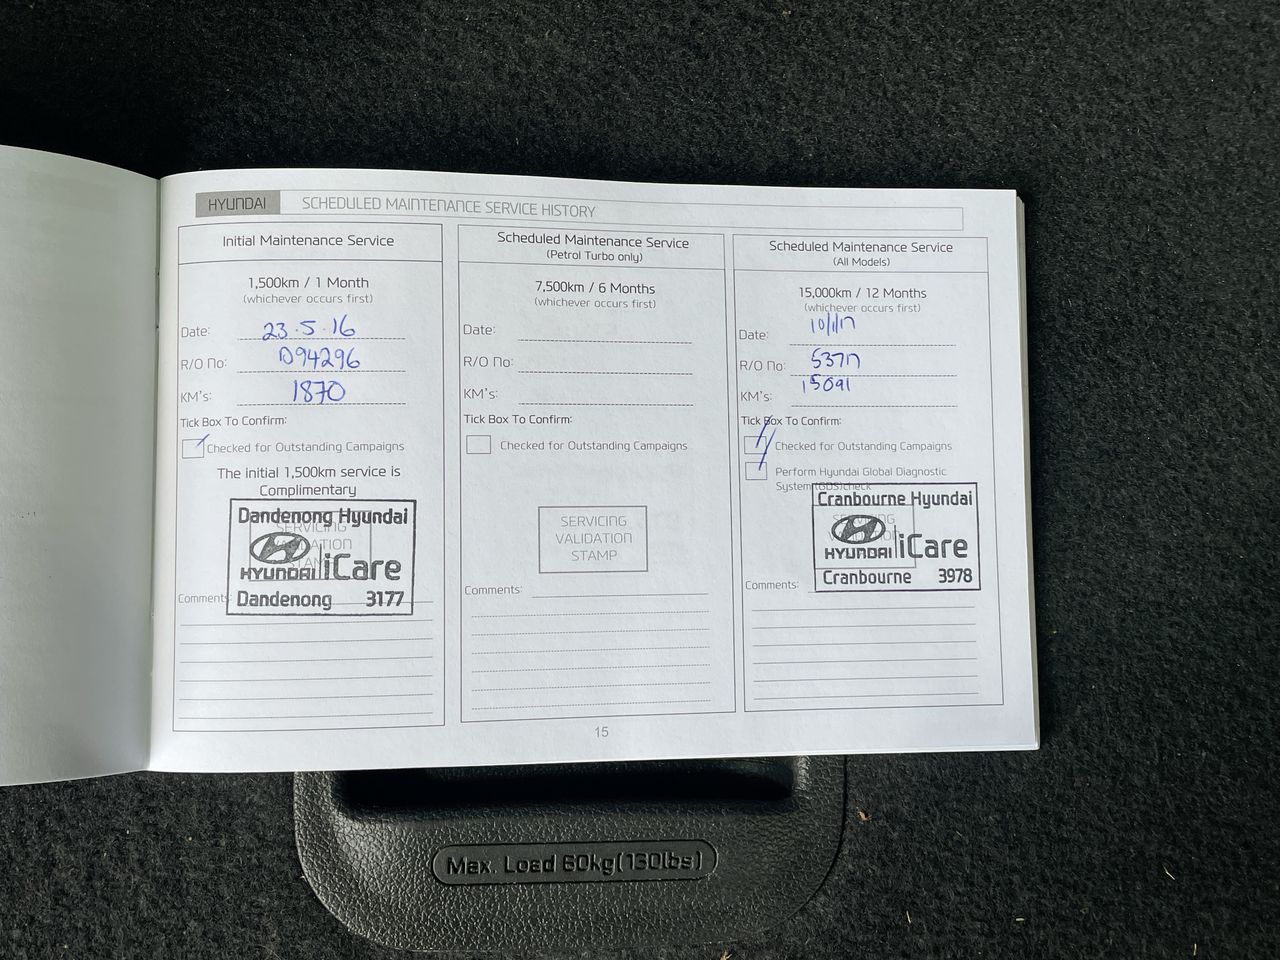 HYUNDAI SCHEDULED MAINTENANCE SERVICE HISTORY
Initial Maintenance Service
1,500km / 1 Month
(whichever occurs first)
Date: 23.5.16
R/O No: D94296
KM's: 1870
Tick Box To Confirm:
Checked for Outstanding Campaigns
The initial 1,500km service is
Complimentary
Dandenong Hyundai
SERVICING
VALIDATION
STAMP
HYUNDAI iCare
Dandenong 3177
Comments:
Scheduled Maintenance Service
(Petrol Turbo only)
7,500km / 6 Months
(whichever occurs first)
Date:
R/O No:
KM's:
Tick Box To Confirm:
Checked for Outstanding Campaigns
SERVICING
VALIDATION
STAMP
Comments:
Scheduled Maintenance Service
(All Models)
15,000km / 12 Months
(whichever occurs first)
Date: 10/1/17
R/O No: 53717
KM's: 15091
Tick Box To Confirm:
Checked for Outstanding Campaigns
Perform Hyundai Global Diagnostic
System (GDS) check
Cranbourne Hyundai
SERVICING
HYUNDAI iCare
Cranbourne 3978
Comments:
15
Max. Load 60kg(130lbs)